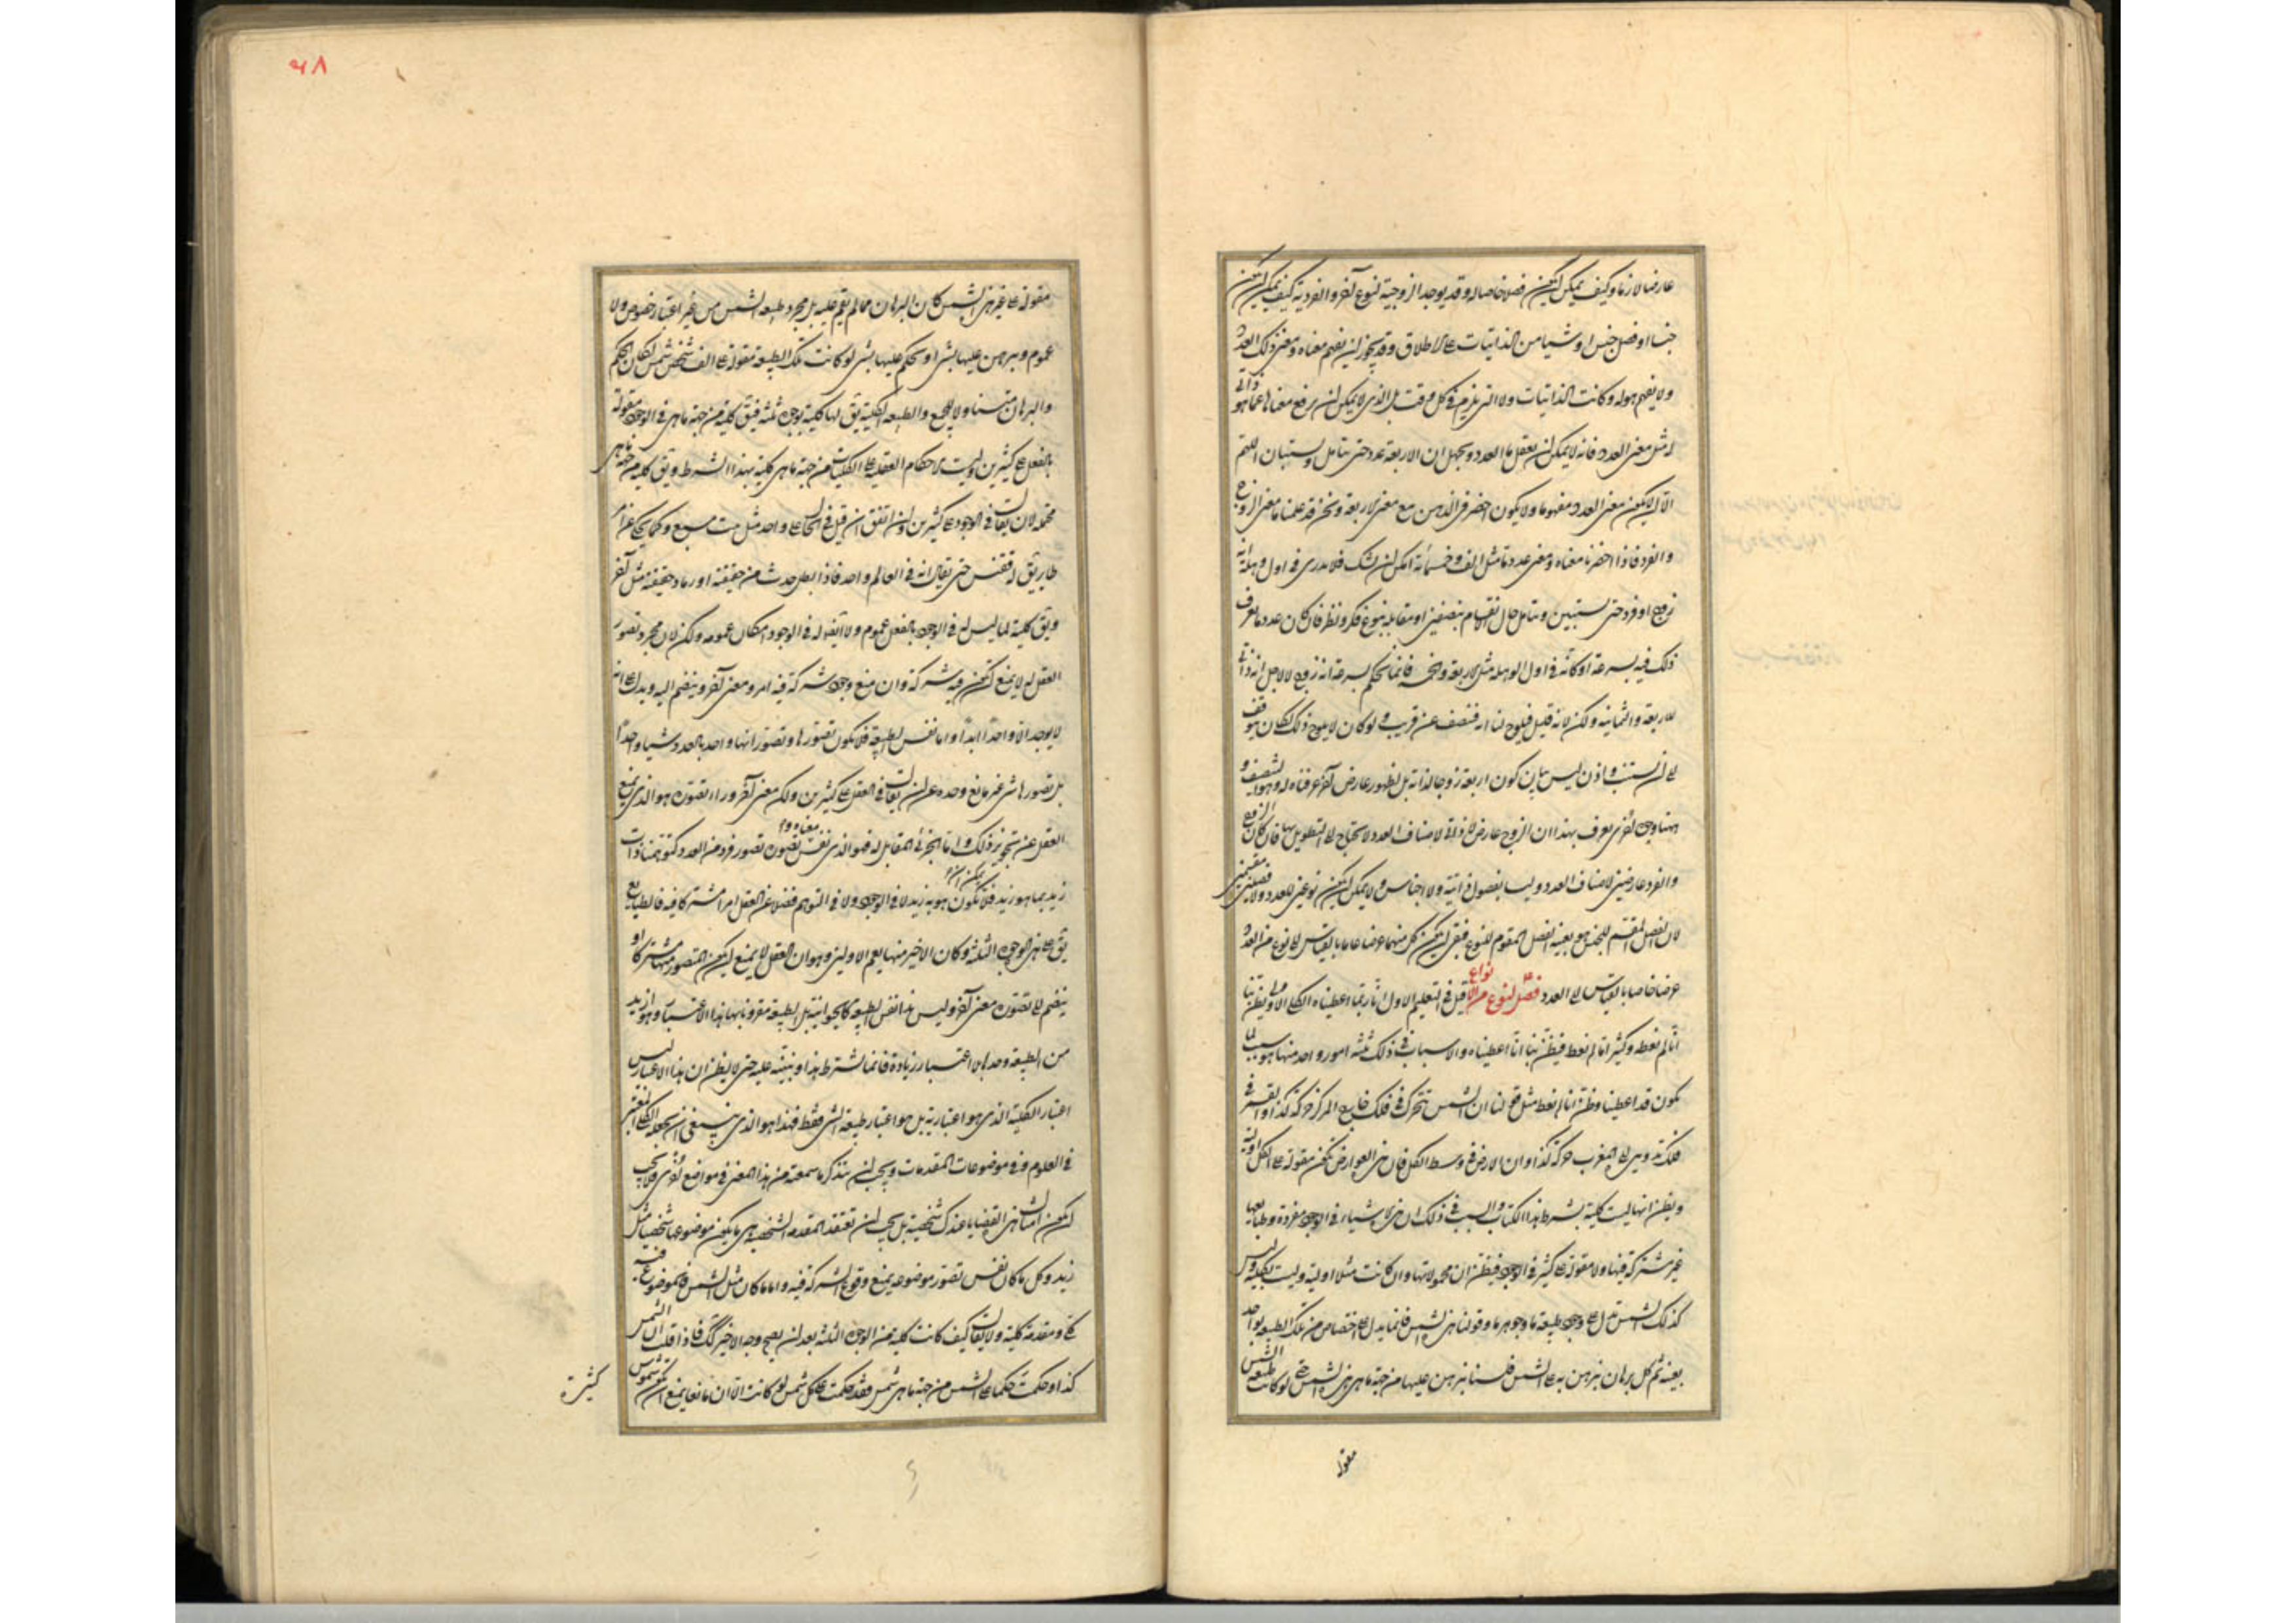 عارضا لازما وكيف يمكن ان يكون فصلا خاصا له وقد يوجد الزوجية لنوع آخر والفردية كيف يمكن ان يكون
جنسا او فصل جنس او شيئا من الذاتيات على الاطلاق وقد يجوز ان يفهم معناه ومعنى ذلك العدد
ولا يفهم هو له وكانت الذاتيات ولا التى يلزم فى كل وقت بل الذى لا يمكن ان يرفع معناها عما هو ذاتى
له مثل معنى العدد فانه لا يمكن ان يعقل ما العدد ويجهل ان الاربعة عدد حتى يتامل ويستبان اللهم
الا ان لا يكون معنى العدد مفهوما ولا يكون احضر فى الذهن مع معنى الاربعة ونحن قد علمنا ما معنى الزوج
والفرد فاذا احضرنا معناه ومعنى عدد ما مثل الف وخمسمائة امكن ان نشك فلا ندرى فى اول وهلة انه
زوج او فرد حتى نستبين ونتامل حال انقسامه بنصفين او مقابله بنوع فكر ونظر فان كان عدد ما نعرف
ذلك فيه بسرعة او كانه فى اول الوهلة مثل الاربعة والخمسة فانما نحكم بسرعة انه زوج لا لاجل انه ذاتى
للاربعة والثمانية ولكن لانه قليل فيلوح لنا انه منتصف عن قريب ولو كان لا يلوح ذلك لكان يتوقف
الى ان نستثبت فاذن ليس بيان كون اربعة زوجا لذاته بل لظهور عارض آخر عرفناه له وهو التنصيف و
ههنا وجوه اخرى يعرف بهذا ان الزوج عارض لا ذاتى لاصناف العدد لا يحتاج الى التطويل بها فان كان الزوج
والفرد عارضين لاصناف العدد وليسا بفصول ذاتية ولا اجناس ولا يمكن ان يكون نوعين للعدد ولا فصلين مقسمين
لان الفصل المقسم للجنس هو بعينه الفصل المقوم للنوع فبقى ان يكون كل منهما عرضا عاما بالقياس الى نوع من العدد
عرضا خاصا بالقياس الى العدد فصل لنوع من الانواع قيل فى التعليم الاول انا ربما اعطينا الكلى الاولى ويظن بنا
انا لم نعطه وكثيرا ما لم نعط فيظن بنا انا اعطيناه والاسباب فى ذلك ثلثة امور واحد منها هو سبب لما
يكون قد اعطينا وظن انا لم نعط مثل قولنا ان الشمس تتحرك فى فلك خارج المركز حركة كذا او القمر فى
فلك تدويره الى المغرب حركة كذا او ان الارض فى وسط الكل فان هذه العوارض تكون مقولة على الكل اولية
ويظن انها ليست كلية بشرط هذا الكتاب والسبب فى ذلك ان هذه الاشياء فى الوجود مفردة وطبائعها
غير مشترك فيها ولا مقولة على كثير فى الوجود فيظن ان محمولاتها وان كانت مثلا اولية وليست بكلية وليس
كذلك الشمس تدل على وجود طبيعة ما وجوهر ما وقولنا هذه الشمس فانما يدل على اختصاص من تلك الطبيعة بواحد
بعينه ثم كل برهان نبرهن به على الشمس فلسنا نبرهن عليها من جهة ما هى هذه الشمس حتى لو كانت طبيعة الشمس
مقولة
٥٨
مقولة على غير هذه الشمس كان البرهان مما لم يقم عليه بل مجرد طبيعة الشمس من غير اعتبار خصوص ولا
عموم ونبرهن عليها بشئ او نحكم عليها بشئ لو كانت تلك الطبيعة مقولة على الف شخص شمس لكان الحكم
والبرهان متناولا للجميع والطبيعة الكلية يق لها كلية بوجوه ثلثة فيق كلية من جهة ما هى فى الوجود مقولة
بالفعل على كثيرين وليست الاحكام العقلية على الكليات من جهة ما هى كلية بهذا الشرط ويق كلية من جهة ما هى
محتملة لان يقال فى الوجود على كثيرين وان اتفق ان قيل فى الحال على واحد مثل بيت مسبع وكما يحكى عن امر
طاير يق له ققنس حتى يقال انه فى العالم واحد فاذا بطل حدث من جيفته او رماد جيفته مثل آخر
ويق كلية لما ليس له فى الوجود بالفعل عموم ولا ايضا له فى الوجود امكان عمومه ولكن لان مجرد تصور
العقل له لا يمنع ان يكون فيه شركة وان منع وجود شركة فيه امر ومعنى آخر وينضم اليه ويدل على انه
لا يوجد الا واحدا ابدا واما نفس الطبيعة فلا يكون تصورها وتصور انها واحد بالعدد شيئا واحدا
بل تصورها شئ غير مانع وحده عن ان يقال فى العقل على كثيرين ولكن معنى آخر وراء تصوره هو الذى يمنع
العقل عن تجويز ذلك واما الجزئى المقابل له فهو الذى نفس تصوره تصور فرد من العدد كتوهمنا ذات
زيد بما هو زيد فلا يمكن ان يكون هوية زيد لا فى الوجود ولا فى التوهم فضلا عن العقل امرا مشتركا فيه فالطبايع
يق على هذه الوجوه الثلثة وكان الاخير منها يعم الاولين وهو ان العقل لا يمنع ان يكون المتصور منها مشتركا او
ينضم الى تصوره معنى آخر وليس هذا نفس الطبيعة كالحيوانية بل الطبيعة مقرونا بها هذا الاعتبار وهو ازيد
من الطبيعة وحدها بلا اعتبار زيادة فانما نشترط هذا وننبه عليه حتى لا يظن ان هذا الاعتبار ليس
اعتبار الكلية الذى هو اعتباريه بل هو اعتبار طبيعة الشئ فقط فهذا هو الذى ينبغى ان نجعله الكلى المعتبر
فى العلوم وفى موضوعات المقدمات ويجب ان نتذكر ما سمعته من هذا المعنى فى مواضع اخرى فلا يجب
ان يكون امثال هذه القضايا عندك شخصية بل يجب ان تعتقد المقدمة الشخصية هى ما يكون موضوعها شخصيا مثل
زيد وكل ما كان نفس تصور موضوعه يمنع وقوع الشركة فيه واما ما كان مثل الشمس فالموضوع فيه
كلى ومقدمة كلية ولا يقال كيف كانت كلية من الوجوه الثلثة بعد ان يصح وجه الاخير لك فاذا قلت ان الشمس
كذا وحكمت حكما على الشمس من جهة ما هى شمس فقد حكمت على كل شمس لو كانت الا ان مانعا يمنع ان يكون شموس
كثيرة